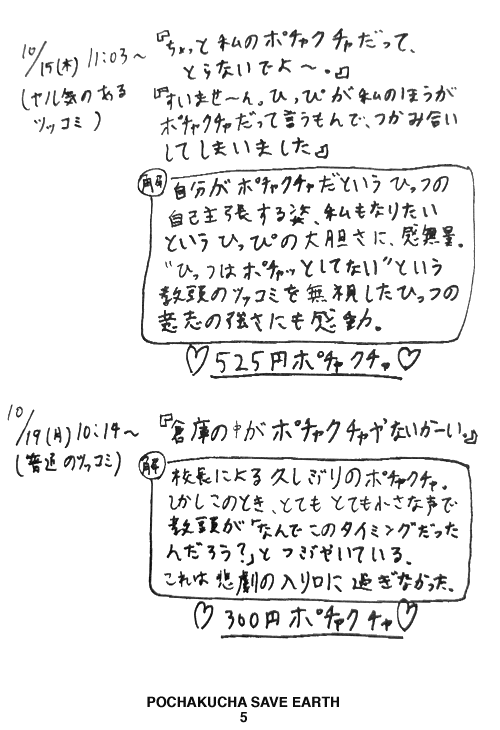 10/15(木) 11:03〜
(ヤル気のある
ツッコミ)
『ちょっと私のポチャクチャだって、
とらないでよ〜。』
『すいませ〜ん。ひっぴが私のほうが
ポチャクチャだって言うもんで、つかみ合い
してしまいました』
解
自分がポチャクチャだというひっつの
自己主張する姿、私もなりたい
というひっぴの大胆さに、感無量。
"ひっつはポチャッとしてない"という
教頭のツッコミを無視したひっつの
意志の強さにも感動。
♡525円ポチャクチャ♡
10/19(月)10:14〜
(普通のツッコミ)
『倉庫の中がポチャクチャやないかーい。』
解
校長による久しぶりのポチャクチャ。
しかしこのとき、とてもとても小さな声で
教頭が「なんでこのタイミングだった
んだろう?」とつぶやいている。
これは悲劇の入り口に過ぎなかった。
♡300円ポチャクチャ♡
POCHAKUCHA SAVE EARTH
5